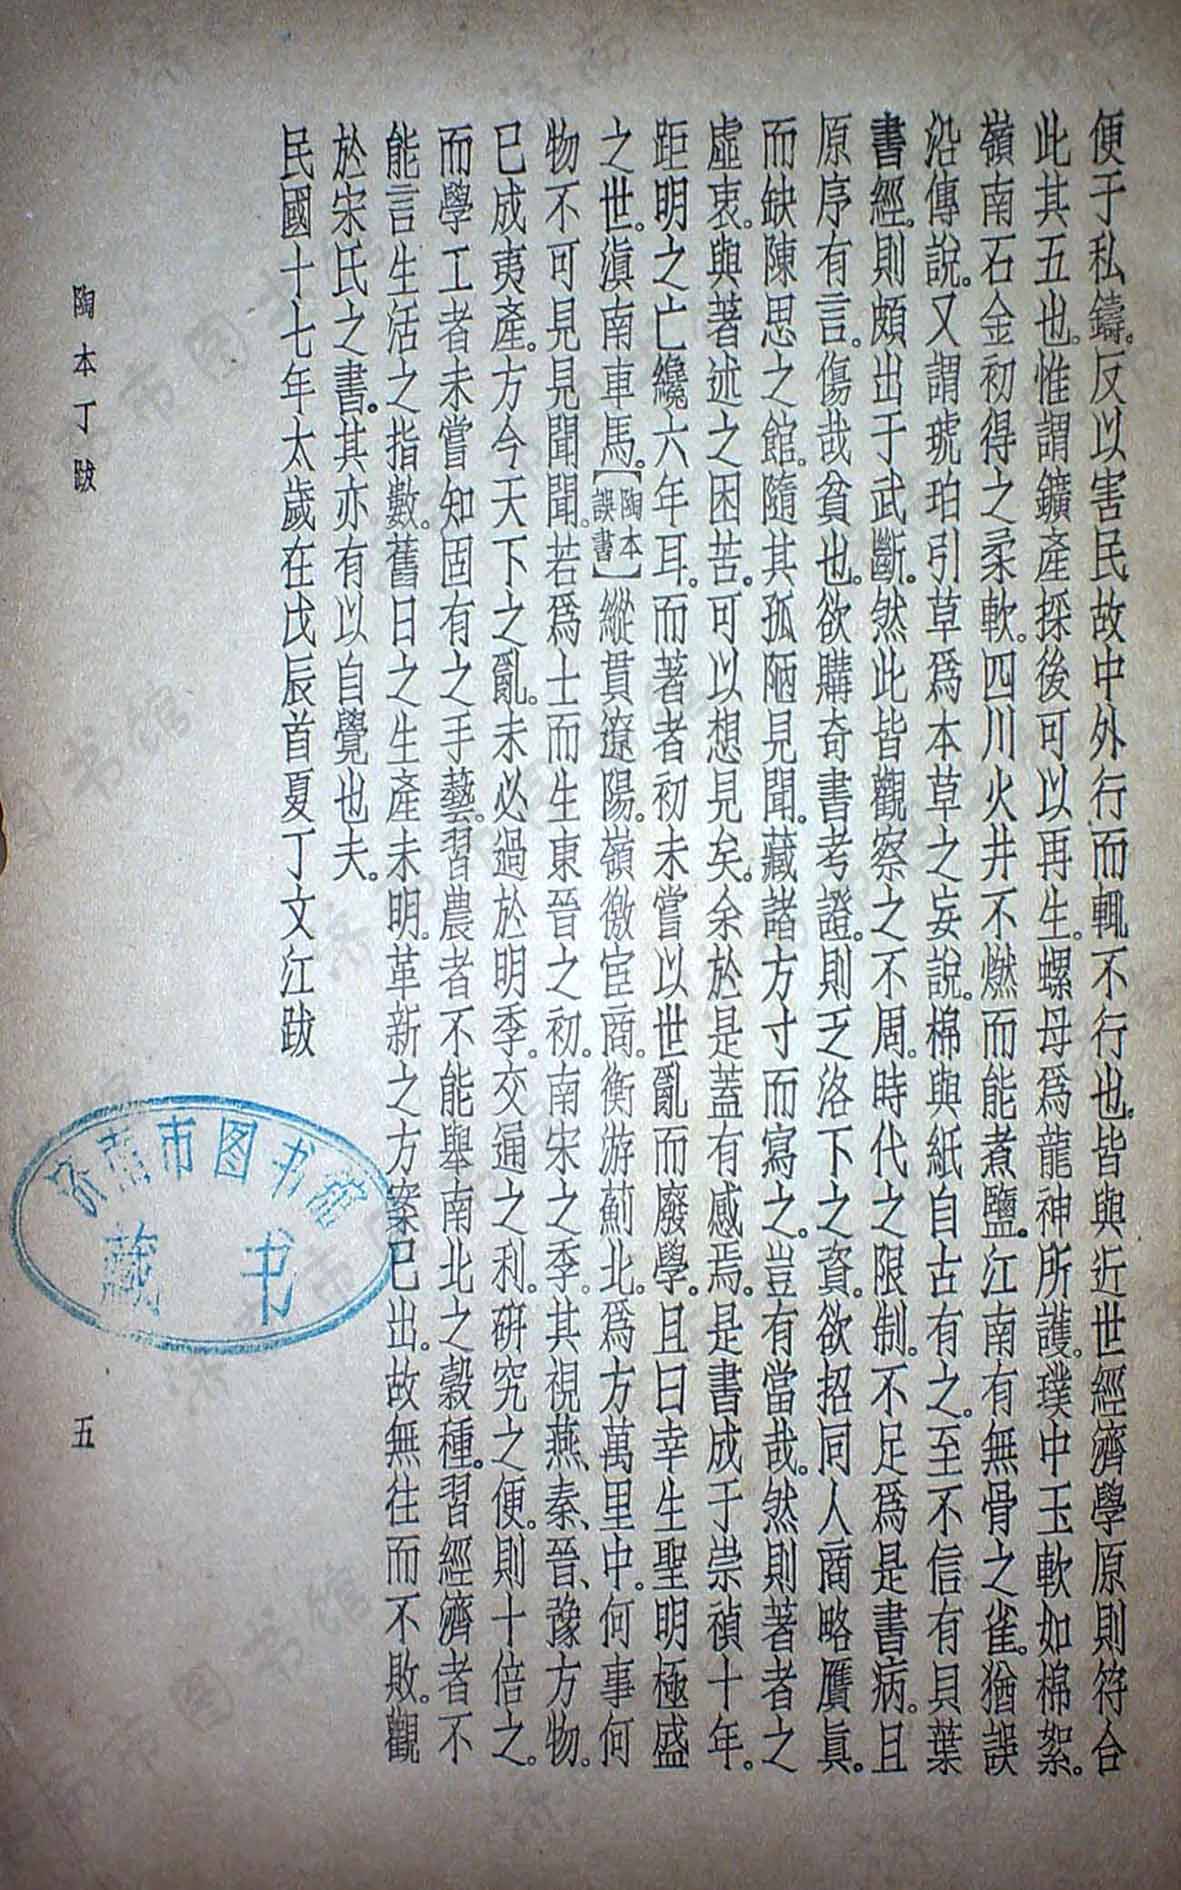 便于私鑄。反以害民。故中外行而輒不行也。皆與近世經濟學原則符合
此其五也。惟謂鑛產採後可以再生。螺母爲龍神所護。璞中玉軟如棉絮。
嶺南石金初得之柔軟。四川火井不燃而能煮鹽。江南有無骨之雀。猶誤
沿傳說。又謂琥珀引草爲本草之妄說。棉與紙自古有之。至不信有貝葉
書經。則頗出于武斷。然此皆觀察之不周。時代之限制。不足爲是書病。且
原序有言。傷哉貧也。欲購奇書考證。則乏洛下之資。欲招同人商略贋眞。
而缺陳思之館。隨其孤陋見聞。藏諸方寸而寫之。豈有當哉。然則著者之
虛衷。與著述之困苦。可以想見矣。余於是蓋有感焉。是書成于崇禎十年。
距明之亡纔六年耳。而著者初未嘗以世亂而廢學。且曰幸生聖明極盛
之世。滇南車馬。【陶本誤書】縱貫遼陽。嶺徼宦商。衡游薊北。爲方萬里中。何事何
物不可見見聞聞。若爲士而生東晉之初。南宋之季。其視燕、秦、晉、豫方物。
已成夷產。方今天下之亂。未必過於明季。交通之利。硏究之便。則十倍之。
而學工者未嘗知固有之手藝。習農者不能舉南北之穀種。習經濟者不
能言生活之指數。舊日之生產未明。革新之方案已出。故無往而不敗。觀
於宋氏之書。其亦有以自覺也夫。
民國十七年太歲在戊辰首夏丁文江跋
陶本丁跋
五
济南市图书馆
藏书